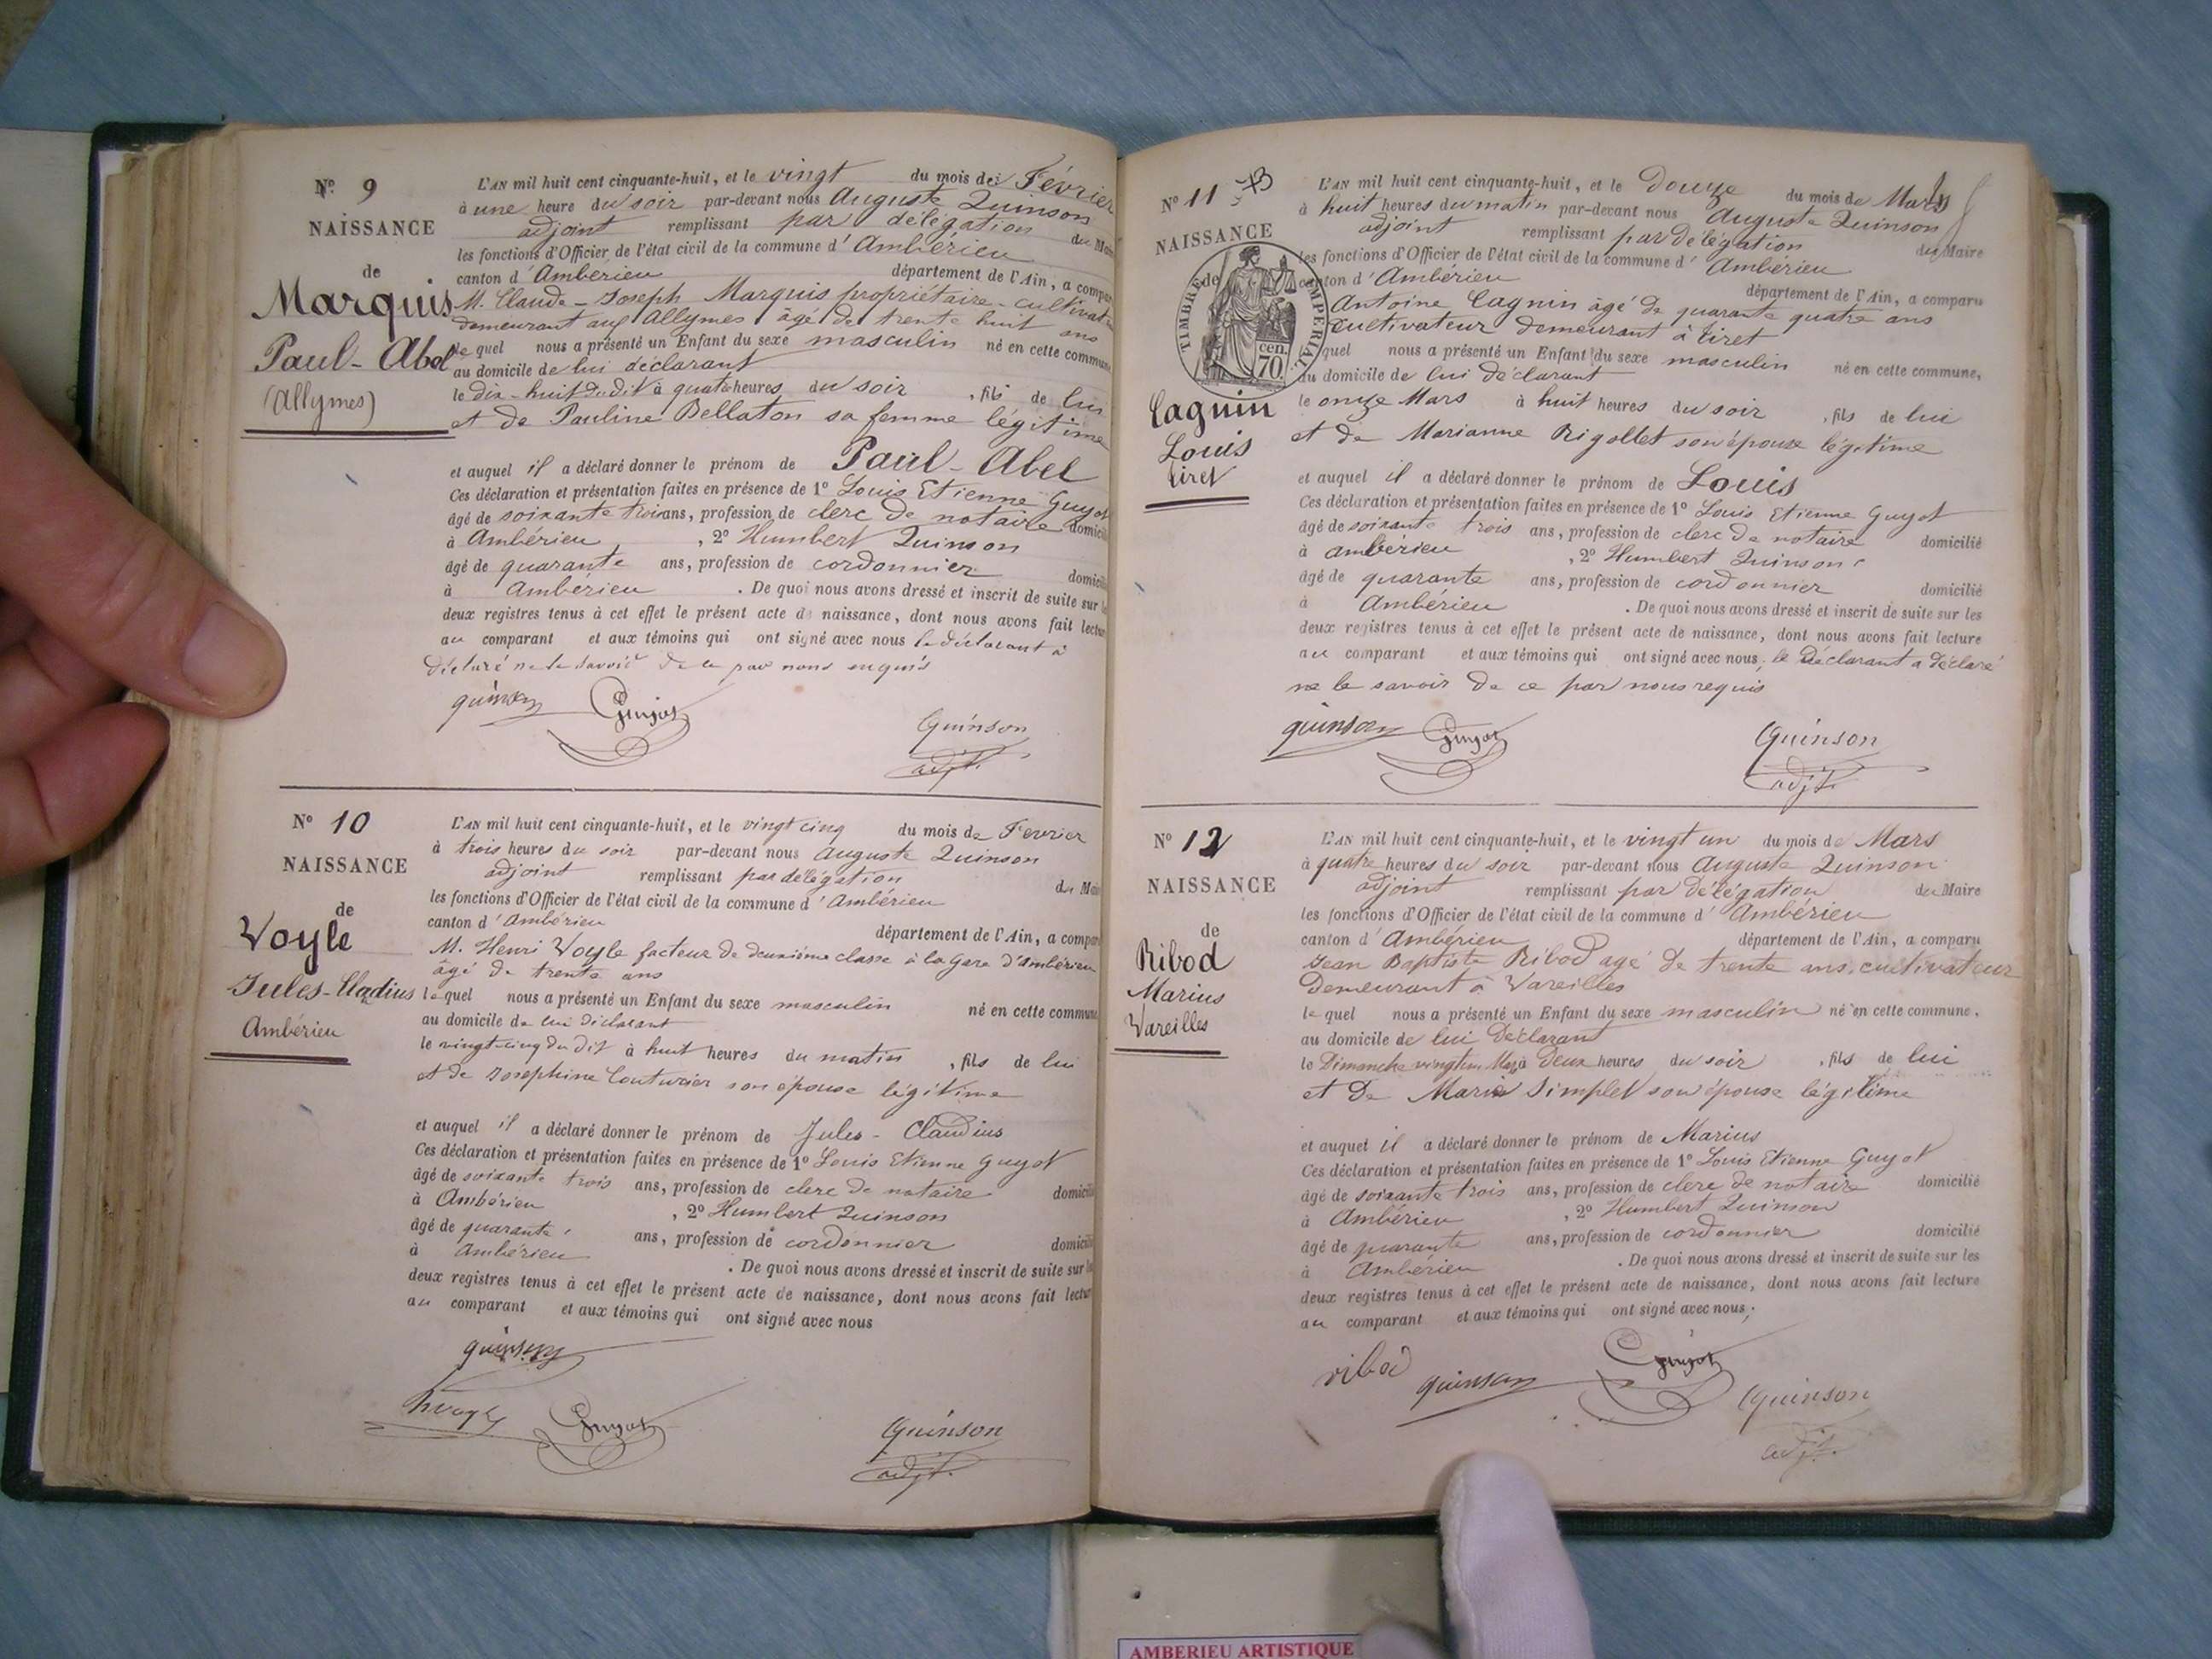 N° 9
NAISSANCE
de
Marquis
Paul-Abel
(Allymes)
L'AN mil huit cent cinquante-huit, et le vingt du mois de Février
à une heure du soir par-devant nous Auguste Quinson
adjoint remplissant par délégation du Mai
les fonctions d'Officier de l'état civil de la commune d'Ambérieu
canton d'Ambérieu département de l'Ain, a compar
M. Claude-Joseph Marquis propriétaire-cultivat
demeurant aux Allymes âgé de trente huit ans
lequel nous a présenté un Enfant du sexe masculin né en cette commune
au domicile de lui déclarant
le dix-huit du dit à quatre heures du soir , fils de lui
et de Pauline Bellaton sa femme légitime
et auquel il a déclaré donner le prénom de Paul-Abel
Ces déclaration et présentation faites en présence de 1° Louis Etienne Guyot
âgé de soixante trois ans, profession de clerc de notaire domicili
à Ambérieu , 2° Humbert Quinson
âgé de quarante ans, profession de cordonnier domicili
à Ambérieu . De quoi nous avons dressé et inscrit de suite sur
deux registres tenus à cet effet le présent acte de naissance, dont nous avons fait lectur
au comparant et aux témoins qui ont signé avec nous le déclarant a
déclaré ne le savoir de ce par nous enquis
quinson Guyot Quinson
adjt.
N° 10
NAISSANCE
de
Voyle
Jules-Cladius
Ambérieu
L'AN mil huit cent cinquante-huit, et le vingt cinq du mois de Fevrier
à trois heures du soir par-devant nous Auguste Quinson
adjoint remplissant par délégation du Mai
les fonctions d'Officier de l'état civil de la commune d'Ambérieu
canton d'Ambérieu département de l'Ain, a compar
M. Henri Voyle facteur de deuxième classe à la gare d'Ambérieu
âgé de trente ans
lequel nous a présenté un Enfant du sexe masculin né en cette commune
au domicile de lui déclarant
le vingt-cinq du dit à huit heures du matin , fils de lui
et de Josephine Couturier son épouse légitime
et auquel il a déclaré donner le prénom de Jules-Claudius
Ces déclaration et présentation faites en présence de 1° Louis Etienne Guyot
âgé de soixante trois ans, profession de clerc de notaire domicili
à Ambérieu , 2° Humbert Quinson
âgé de quarante ans, profession de cordonnier domicili
à Ambérieu . De quoi nous avons dressé et inscrit de suite sur
deux registres tenus à cet effet le présent acte de naissance, dont nous avons fait lectur
au comparant et aux témoins qui ont signé avec nous
quinson
hvoyle Guyot Quinson
adjt.
N° 11
NAISSANCE
de
TIMBRE IMPERIAL
70 cen.
Cagnin
Louis
tiret
L'AN mil huit cent cinquante-huit, et le Douze du mois de Mars
à huit heures du matin par-devant nous Auguste Quinson
adjoint remplissant par délégation du Maire
les fonctions d'Officier de l'état civil de la commune d'Ambérieu
canton d'Ambérieu département de l'Ain, a comparu
Antoine Cagnin âgé de quarante quatre ans
cultivateur demeurant à tiret
quel nous a présenté un Enfant du sexe masculin né en cette commune,
au domicile de lui déclarant
le onze Mars à huit heures du soir , fils de lui
et de Marianne Rigollet son épouse légitime
et auquel il a déclaré donner le prénom de Louis
Ces déclaration et présentation faites en présence de 1° Louis Etienne Guyot
âgé de soixante trois ans, profession de clerc de notaire domicilié
à ambérieu , 2° Humbert Quinson
âgé de quarante ans, profession de cordonnier domicilié
à Ambérieu . De quoi nous avons dressé et inscrit de suite sur les
deux registres tenus à cet effet le présent acte de naissance, dont nous avons fait lecture
au comparant et aux témoins qui ont signé avec nous, le déclarant a déclaré
ne le savoir de ce par nous requis
quinson Guyot Quinson
adjt.
N° 12
NAISSANCE
de
Ribod
Marius
Vareilles
L'AN mil huit cent cinquante-huit, et le vingt un du mois de Mars
à quatre heures du soir par-devant nous Auguste Quinson
adjoint remplissant par délégation du Maire
les fonctions d'Officier de l'état civil de la commune d'Ambérieu
canton d'Ambérieu département de l'Ain, a comparu
Jean Baptiste Ribod agé de trente ans, cultivateur
demeurant à Vareilles
lequel nous a présenté un Enfant du sexe masculin né en cette commune,
au domicile de lui Déclarant
le Dimanche vingt un Mars à deux heures du soir , fils de lui
et de Marie Simplet son épouse légitime
et auquel il a déclaré donner le prénom de Marius
Ces déclaration et présentation faites en présence de 1° Louis Etienne Guyot
âgé de soixante trois ans, profession de clerc de notaire domicilié
à Ambérieu , 2° Humbert Quinson
âgé de quarante ans, profession de cordonnier domicilié
à Ambérieu . De quoi nous avons dressé et inscrit de suite sur les
deux registres tenus à cet effet le présent acte de naissance, dont nous avons fait lecture
au comparant et aux témoins qui ont signé avec nous;
ribod quinson Guyot Quinson
adjt.
AMBERIEU ARTISTIQUE